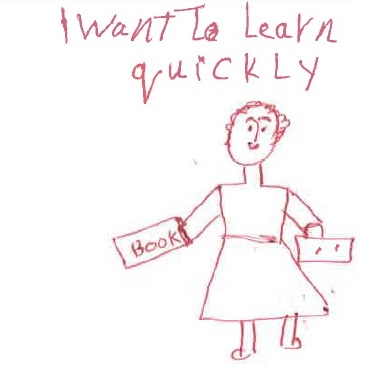 I want To Learn
quickLy
Book